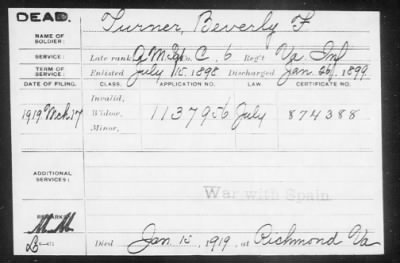 DEAD.
NAME OF SOLDIER: Turner, Beverly F
SERVICE: Late rank, Co. C, 6 Reg't Va. Inf
TERM OF SERVICE: Enlisted July 15, 1898 Discharged Jan 26, 1899
DATE OF FILING. CLASS. APPLICATION NO. LAW. CERTIFICATE NO.
Invalid,
1919 Mch 17 Widow, 1137956 July 874388
Minor,
ADDITIONAL SERVICES:
War with Spain
REMARKS:
Died Jan. 15, 1919, at Richmond Va